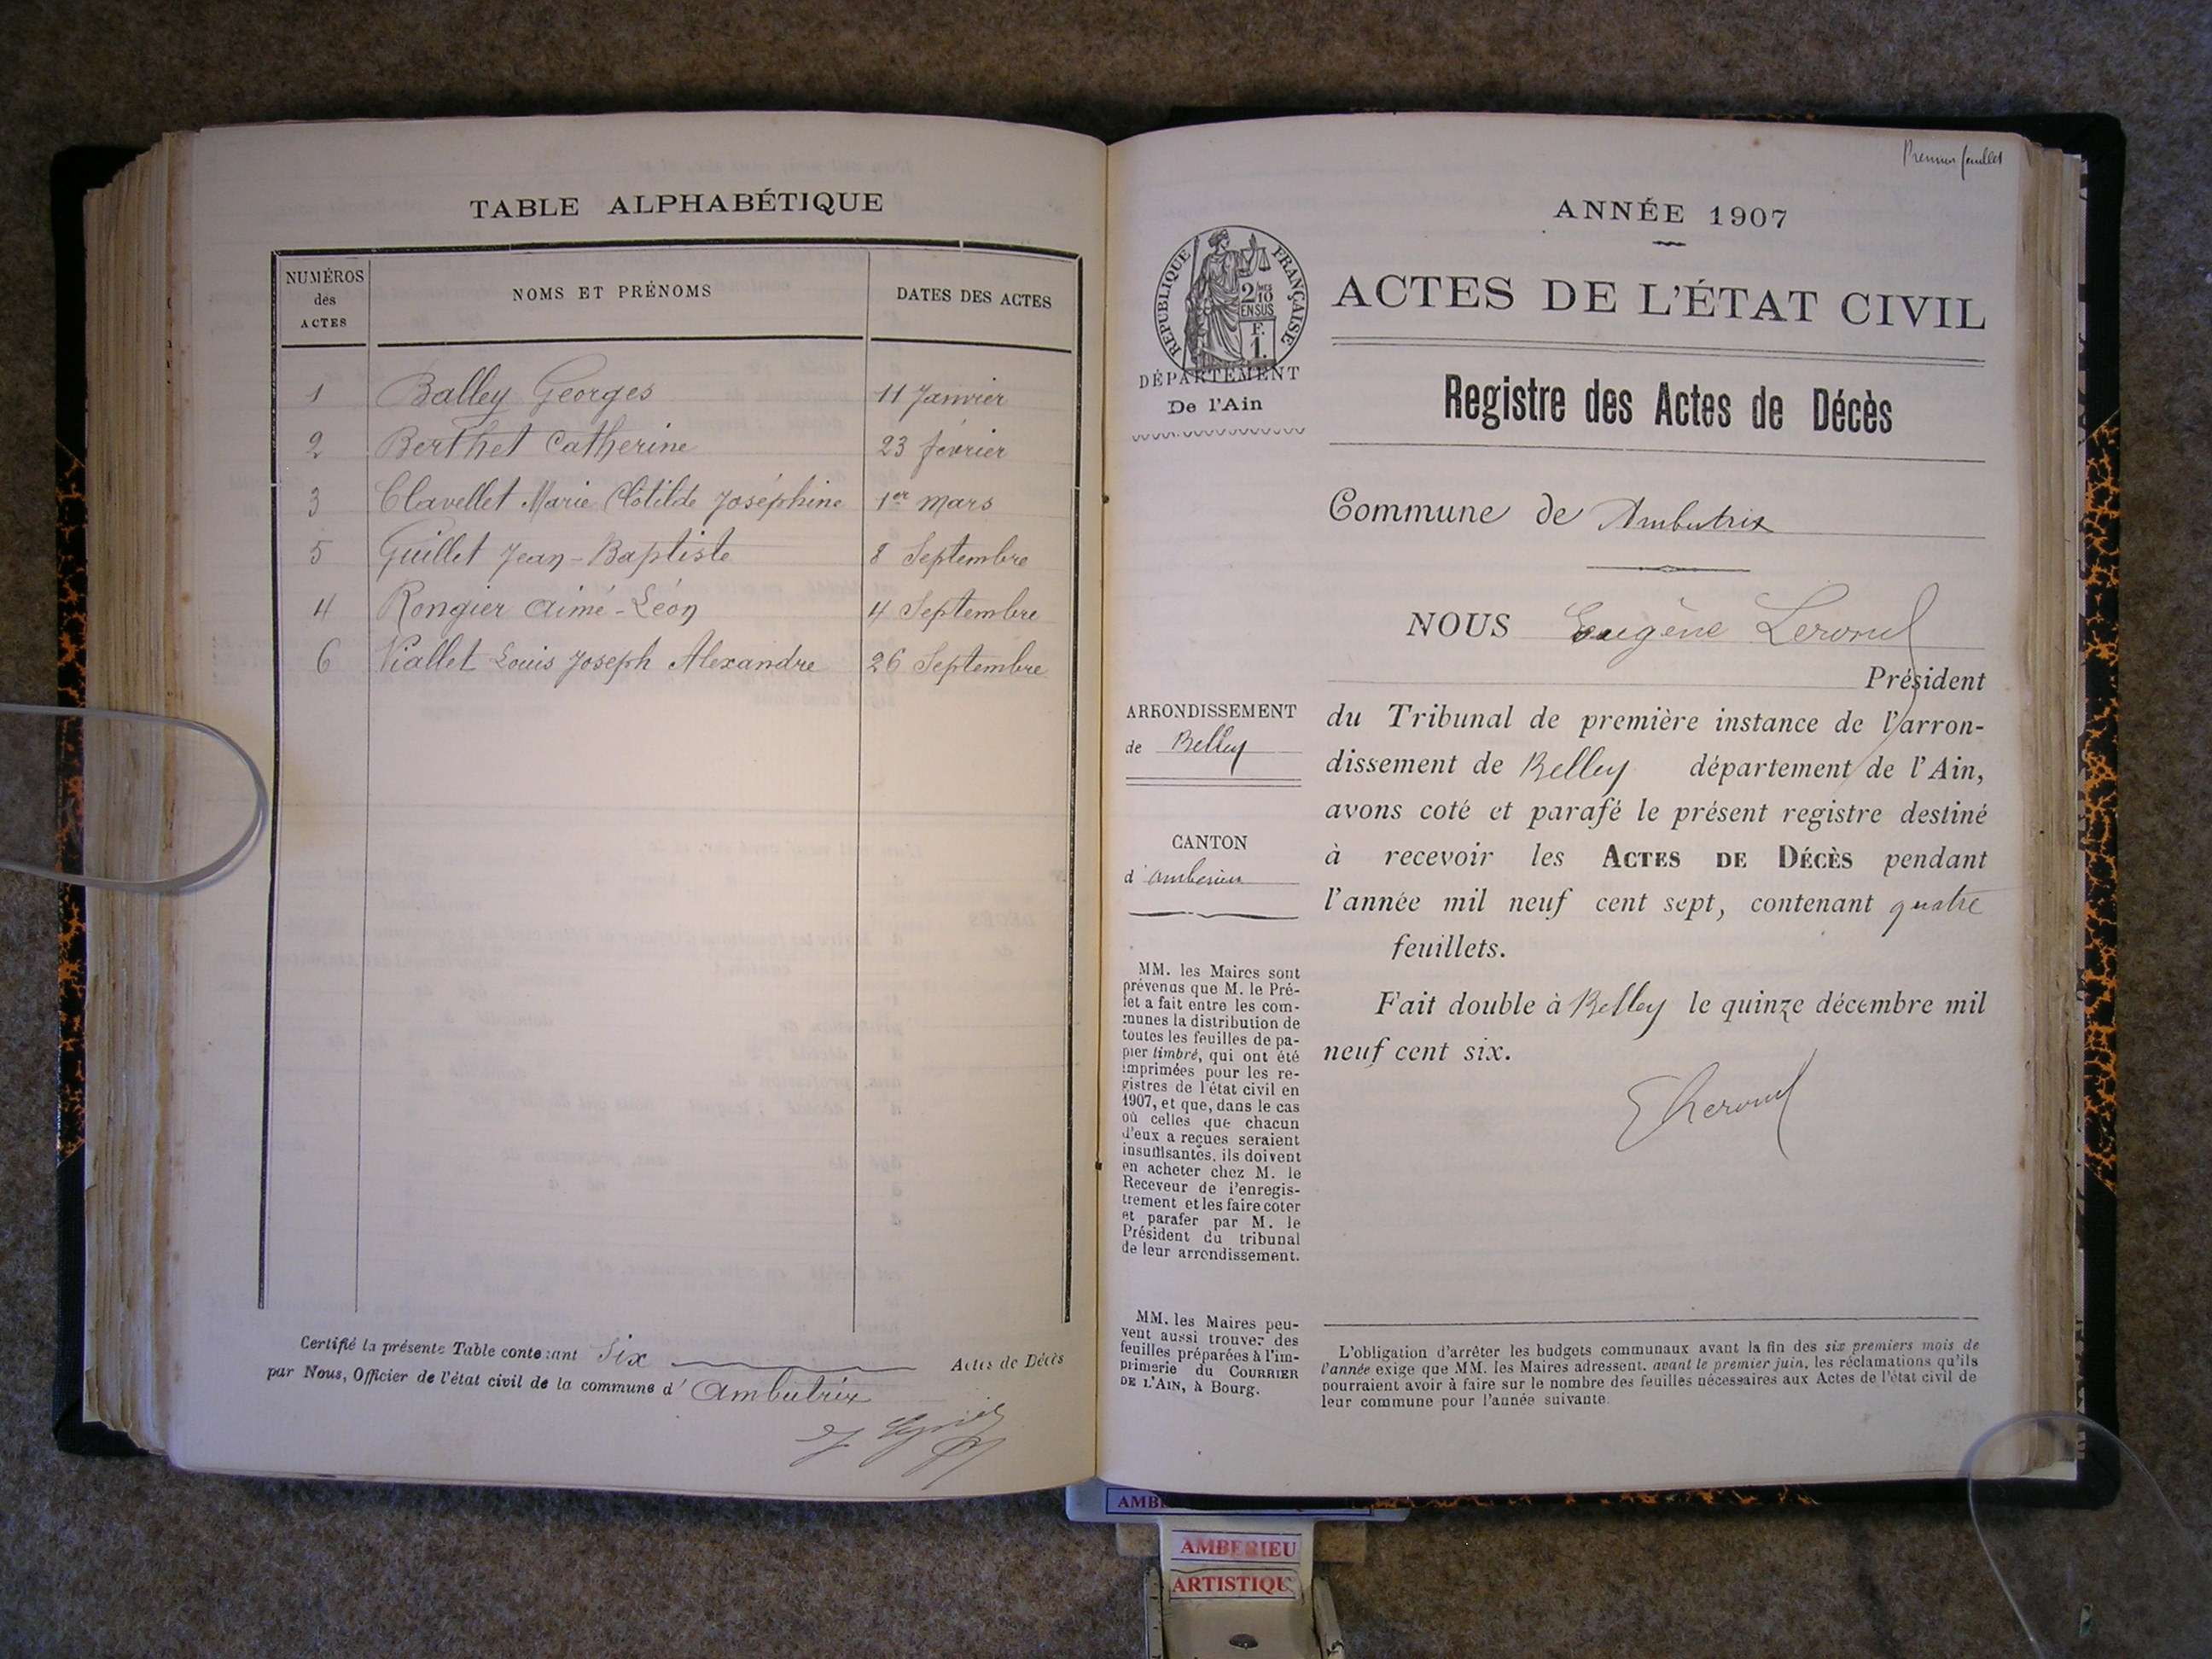 TABLE ALPHABÉTIQUE
NUMÉROS
des
ACTES
NOMS ET PRÉNOMS
DATES DES ACTES
1 Balley Georges 11 Janvier
2 Berthet Catherine 23 février
3 Clavellet Marie Clotilde Joséphine 1er mars
5 Guillet Jean-Baptiste 8 Septembre
4 Rongier Aimé-Léon 4 Septembre
6 Viallet Louis Joseph Alexandre 26 Septembre
Certifié la présente Table contenant Six Actes de Décès
par Nous, Officier de l'état civil de la commune d'Ambutrix
Premier feuillet
ANNÉE 1907
RÉPUBLIQUE FRANÇAISE
2/10 MES
EN SUS
F.
1.
ACTES DE L'ÉTAT CIVIL
DÉPARTEMENT
De l'Ain
Registre des Actes de Décès
Commune de Ambutrix
NOUS Eugène
Président
ARRONDISSEMENT
de Belley
CANTON
d'ambérieu
du Tribunal de première instance de l'arron-
dissement de Belley département de l'Ain,
avons coté et parafé le présent registre destiné
à recevoir les ACTES DE DÉCÈS pendant
l'année mil neuf cent sept, contenant quatre
feuillets.
Fait double à Belley le quinze décembre mil
neuf cent six.
MM. les Maires sont
prévenus que M. le Pré-
fet a fait entre les com-
munes la distribution de
toutes les feuilles de pa-
pier timbré, qui ont été
imprimées pour les re-
gistres de l'état civil en
1907, et que, dans le cas
où celles que chacun
d'eux a reçues seraient
insuffisantes, ils doivent
en acheter chez M. le
Receveur de l'enregis-
trement et les faire coter
et parafer par M. le
Président du tribunal
de leur arrondissement.
MM. les Maires peu-
vent aussi trouver des
feuilles préparées à l'im-
primerie du COURRIER
DE L'AIN, à Bourg.
L'obligation d'arrêter les budgets communaux avant la fin des six premiers mois de
l'année exige que MM. les Maires adressent, avant le premier juin, les réclamations qu'ils
pourraient avoir à faire sur le nombre des feuilles nécessaires aux Actes de l'état civil de
leur commune pour l'année suivante.
AMBERIEU
ARTISTIQU